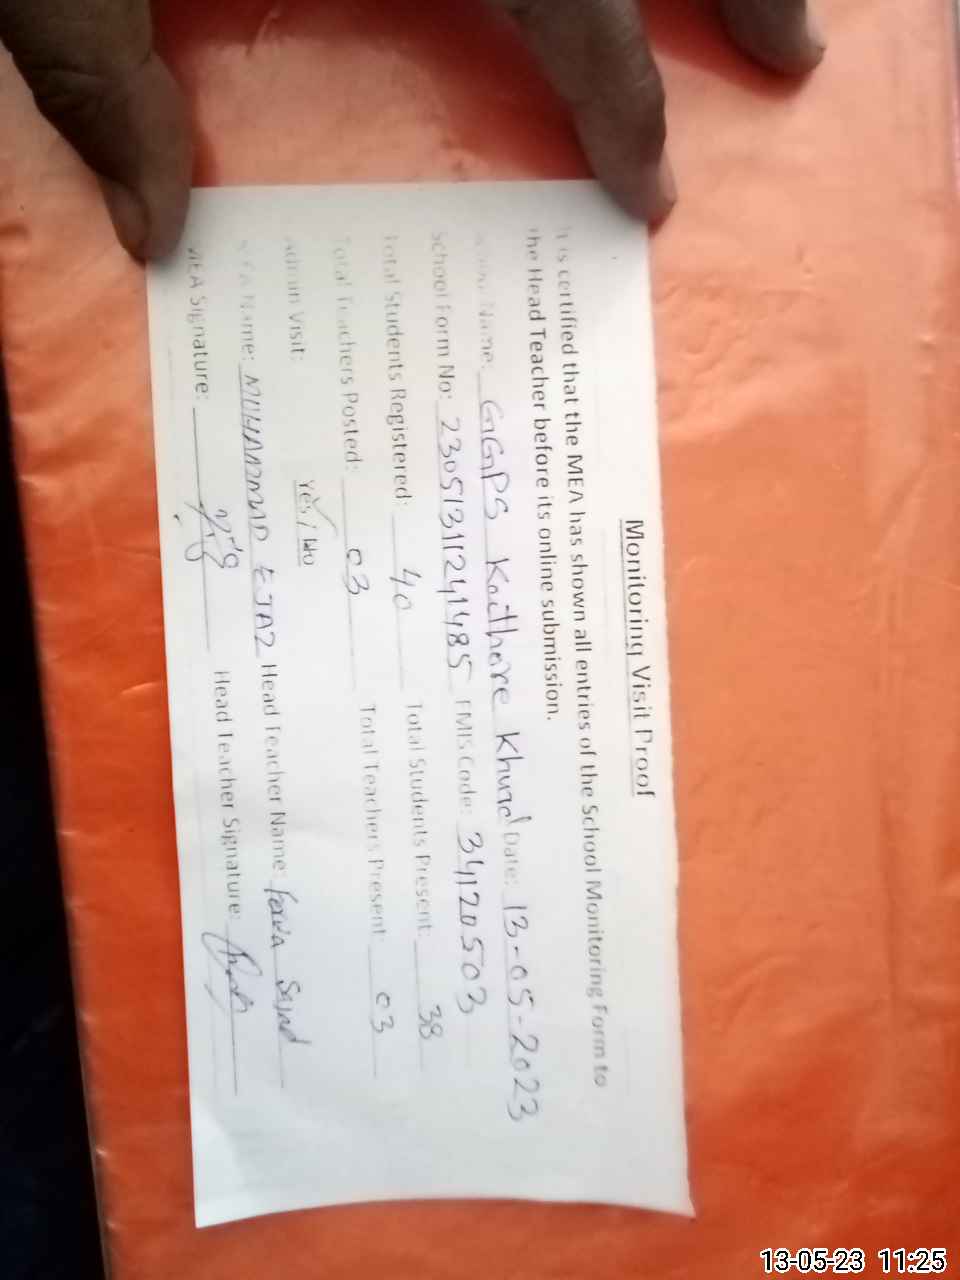 Monitoring Visit Proof
It is certified that the MEA has shown all entries of the School Monitoring Form to
the Head Teacher before its online submission.
Name: GGPS Kaithare Khurd Date: 13-05-2023
School Form No: 23051311241485 EMIS Code: 34120503
Total Students Registered: 40 Total Students Present: 38
Total Teachers Posted: 03 Total Teachers Present: 03
Admin Visit: Yes / No
MEA Name: MUHAMMAD EJAZ Head Teacher Name: Farwa Sajjad
MEA Signature: Head Teacher Signature:
13-05-23 11:25